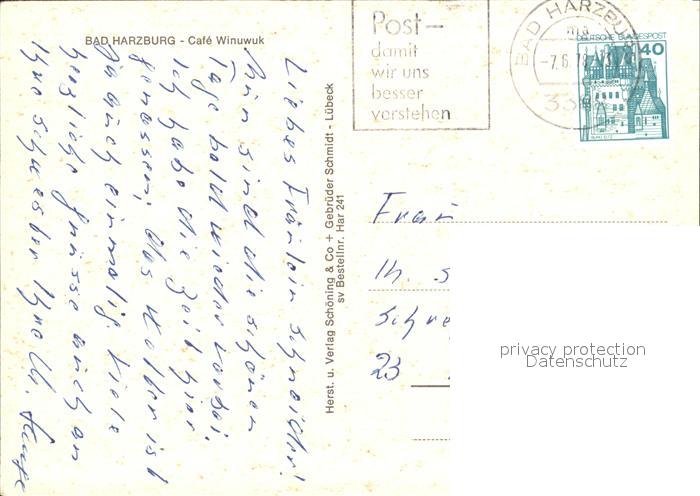 BAD HARZBURG - Café Winuwuk
Liebes Fräulein Schneider!
Nun sind die schönen
Tage bald wieder vorbei.
Ich habe die Zeit hier
genossen, das Wetter ist
ja auch einmalig. Viele
herzliche Grüsse auch an
Ihre Schwester Ihre
Herst. u. Verlag Schöning & Co + Gebrüder Schmidt - Lübeck
sv Bestellnr. Har 241
Post-
damit
wir uns
besser
verstehen
BAD HARZBURG
-7.6.78
DEUTSCHE BUNDESPOST
40
Frau
23
privacy protection
Datenschutz